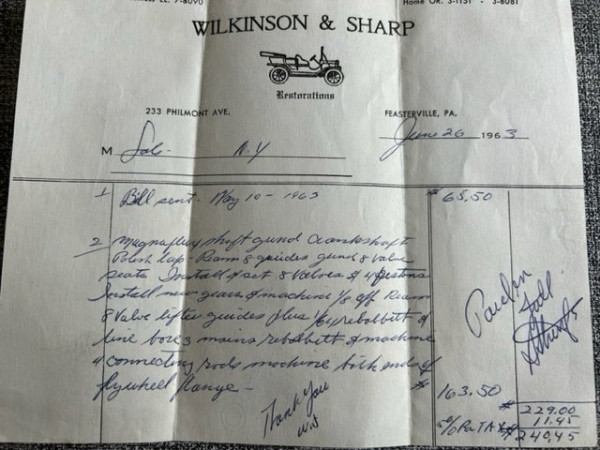 7-8090
Home OR. 3-1151 • 3-8081
WILKINSON & SHARP
Restorations
233 PHILMONT AVE.
FEASTERVILLE, PA.
June 26 1963
M N.Y
1 Bill sent. May 10 - 1963 $ 65.50
2 Magnaflux shaft grind Crankshaft
Polish lap - Ream 8 guides grind 8 Valve
seats Install & set 8 Valves & 4 pistons
Install new gears & machine 1/8 off Ream
8 Valve lifter guides plus 1/64 rebabbitt &
line bore 3 mains rebabbitt & machine
4 connecting rods machine both ends of
flywheel flange - $ 163.50
Paid in full
Thank You
WW
$ 229.00
Pa TAX 11.45
$ 240.45